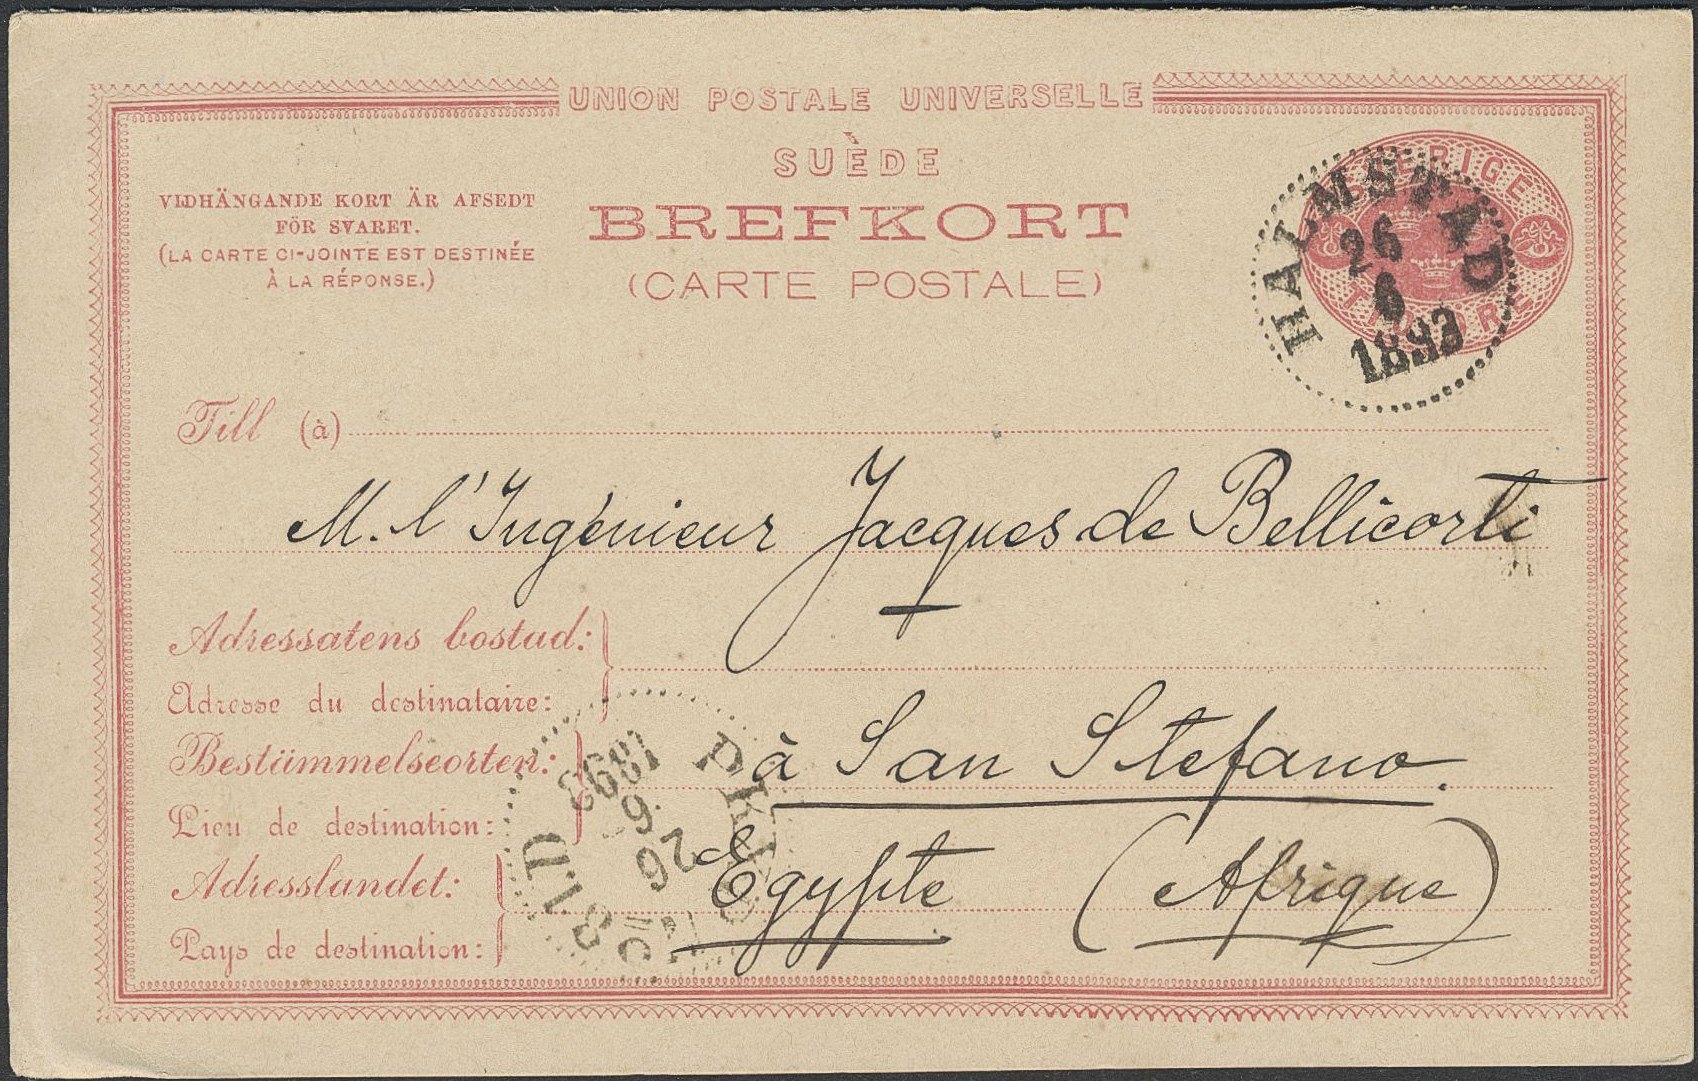 UNION POSTALE UNIVERSELLE
SUÈDE
BREFKORT
(CARTE POSTALE)
VIDHÄNGANDE KORT ÄR AFSEDT
FÖR SVARET.
(LA CARTE CI-JOINTE EST DESTINÉE
À LA RÉPONSE.)
SVERIGE
TIO ÖRE
HALMSTAD
26
6
1893
Till (à)
M. l'Ingénieur Jacques de Bellicorti
Adressatens bostad:
Adresse du destinataire:
à San Stefano.
Bestämmelseorten:
Lieu de destination:
Egypte (Afrique)
Adresslandet:
Pays de destination:
26
6
1893